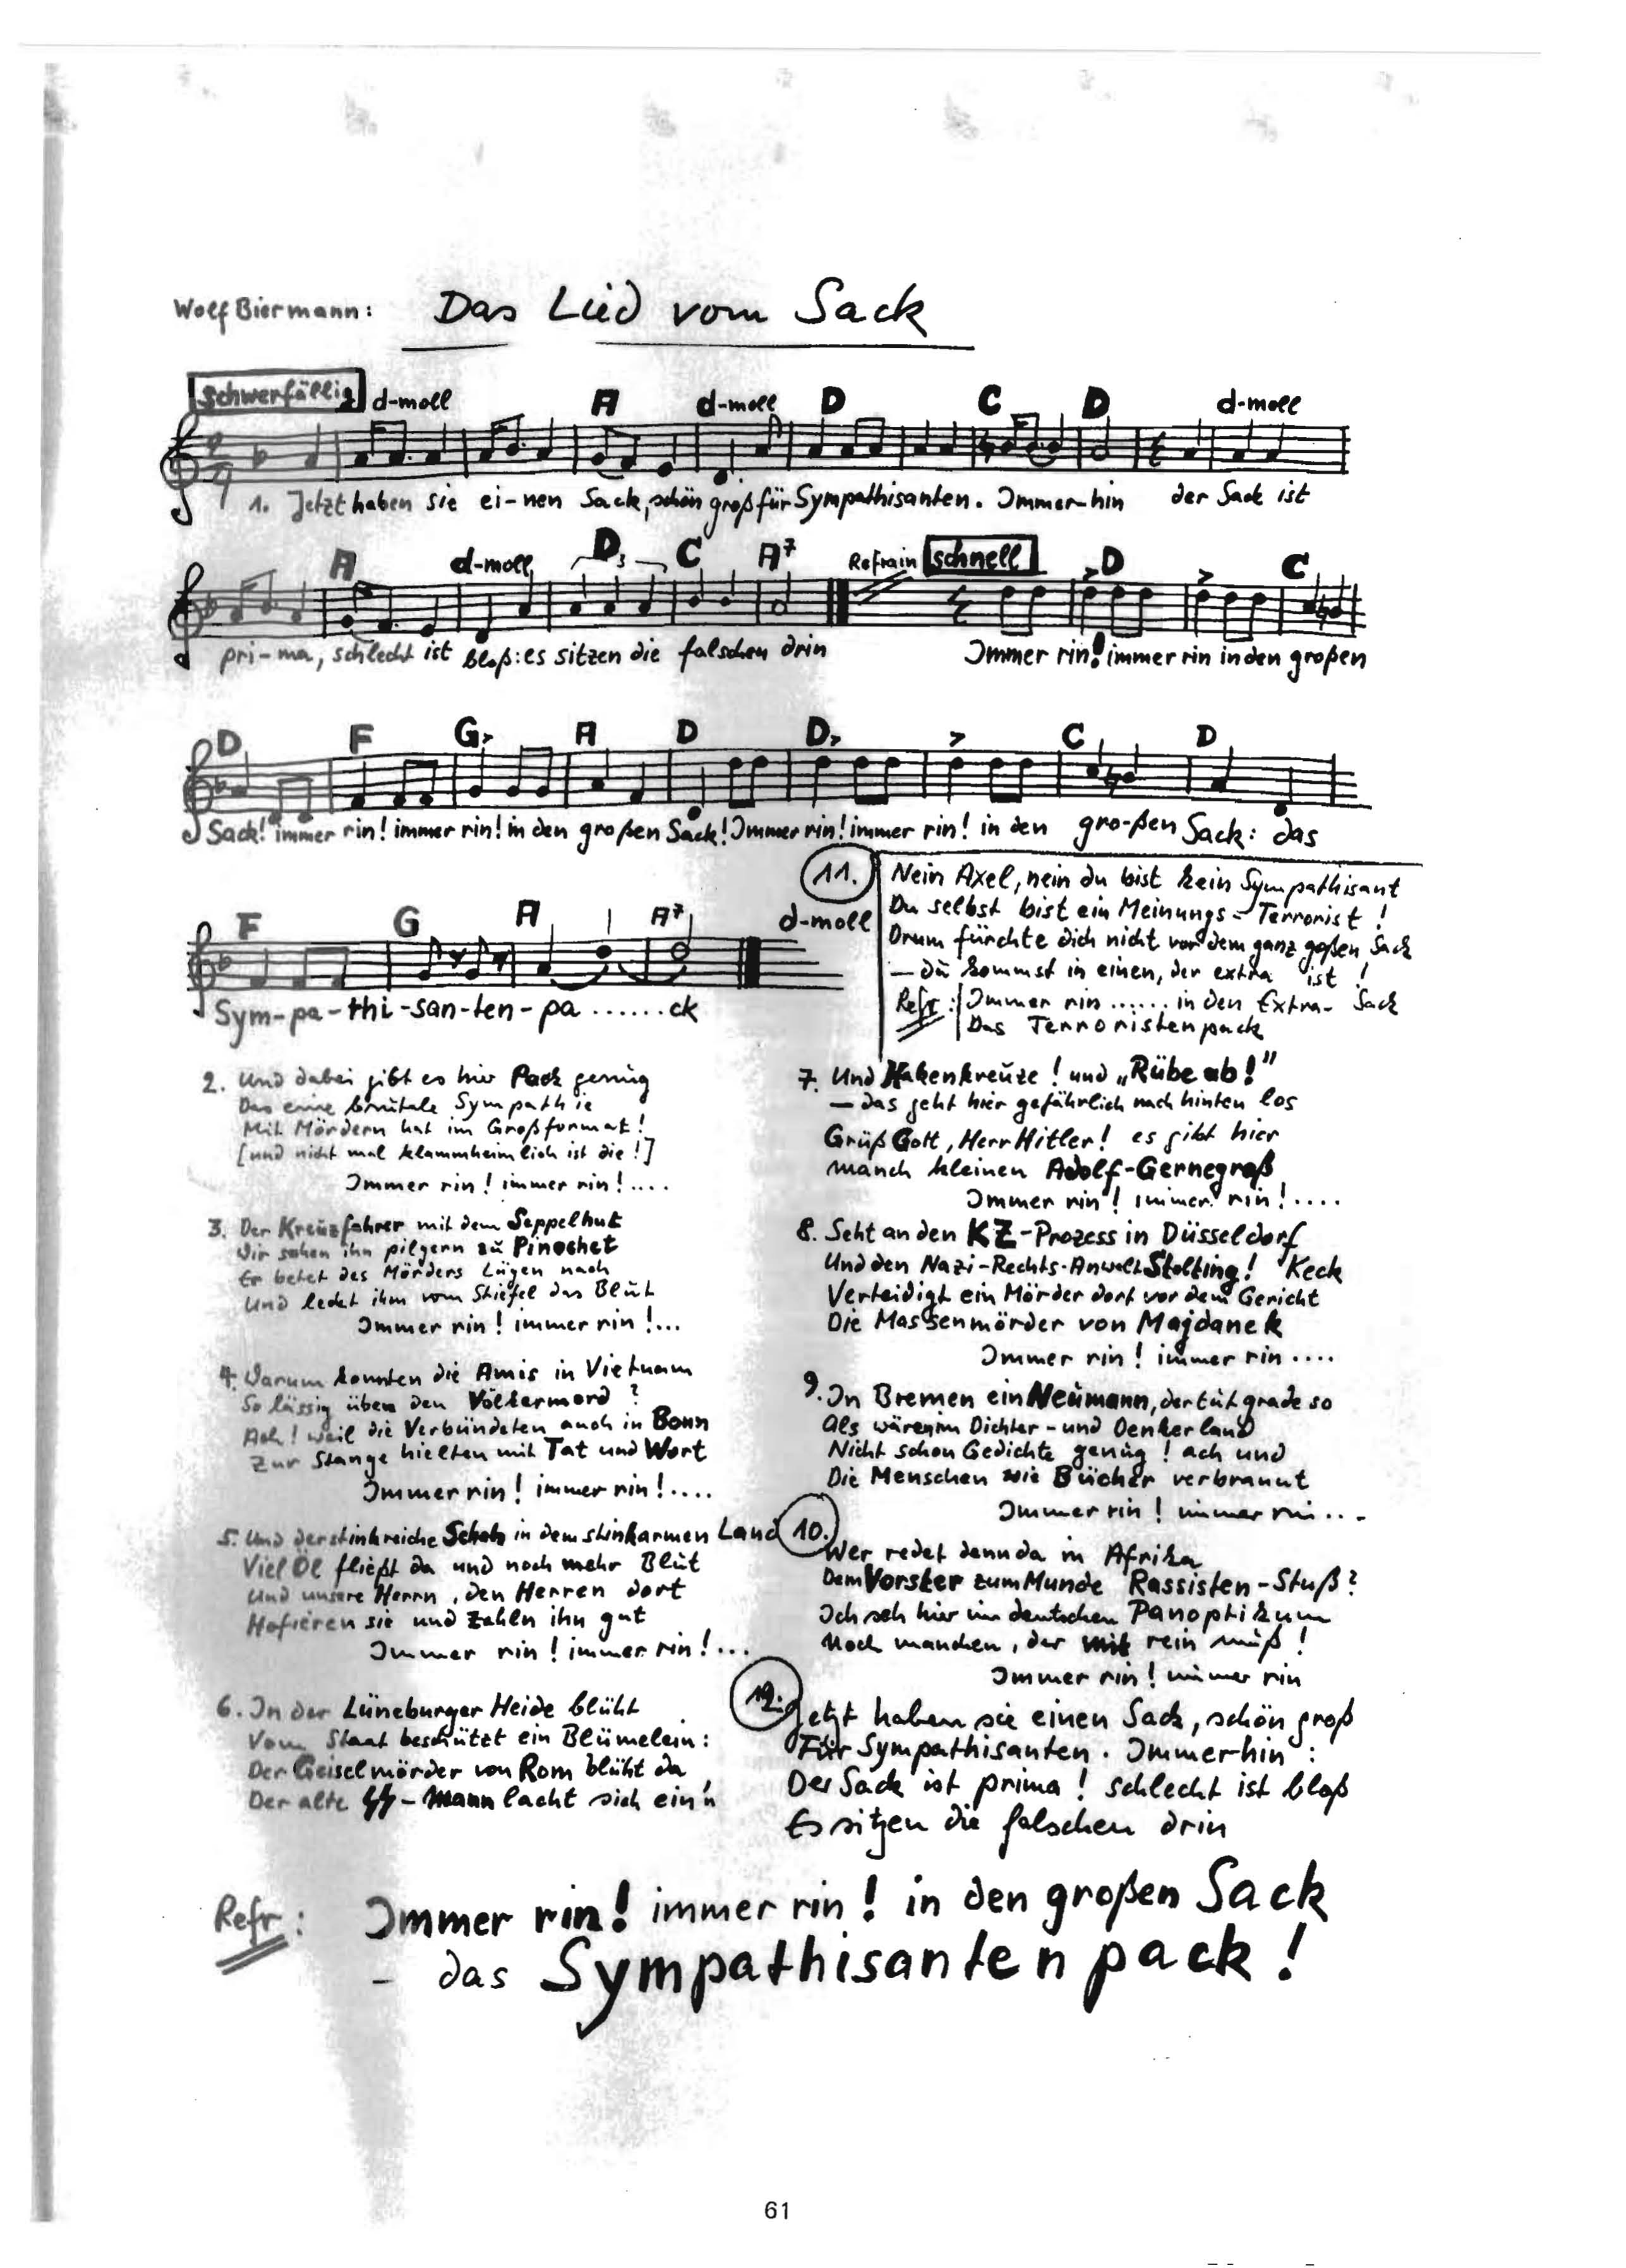 Wolf Biermann: Das Lied vom Sack
schwerfällig d-moll A d-moll D C D d-moll
1. Jetzt haben sie ei-nen Sack, schön groß für Sympathisanten. Immer-hin der Sack ist
A d-moll D C A7 Refrain schnell D C
pri-ma, schlecht ist bloß: es sitzen die falschen drin Immer rin! immer rin in den großen
D F G A D D C D
Sack! immer rin! immer rin! in den großen Sack! Immer rin! immer rin! in den gro-ßen Sack: das
F G A A7 d-moll
Sym-pa-thi-san-ten-pa ...... ck
11. Nein Axel, nein du bist kein Sympathisant
Du selbst bist ein Meinungs-Terrorist!
Drum fürchte dich nicht vor dem ganz goßen Sack
– du kommst in einen, der extra ist!
Refr: Immer rin ...... in den Extra-Sack
Das Terroristenpack
2. Und dabei gibt es hier Pack genug
Das eine brutale Sympathie
Mit Mördern hat im Großformat!
[und nicht mal klammheimlich ist die!]
Immer rin! immer rin!....
3. Der Kreuzfahrer mit dem Seppelhut
Wir sahen ihn pilgern zu Pinochet
Er betet des Mörders Lügen nach
Und leckt ihm vom Stiefel das Blut
Immer rin! immer rin!...
4. Warum konnten die Amis in Vietnam
So lässig üben den Völkermord?
Ach! weil die Verbündeten auch in Bonn
Zur Stange hielten mit Tat und Wort
Immer rin! immer rin!....
5. Und der stinkreiche Schah in dem stinkarmen Land
Viel Öl fließt da und noch mehr Blut
Und unsere Herrn, den Herren dort
Hofieren sie und zahln ihn gut
Immer rin! immer rin!...
6. In der Lüneburger Heide blüht
Vom Staat beschützt ein Blümelein:
Der Geiselmörder von Rom blüht da
Der alte SS-Mann lacht sich ein'n
7. Und Hakenkreuze! und „Rübe ab!"
– das geht hier gefährlich nach hinten los
Grüß Gott, Herr Hitler! es gibt hier
manch kleinen Adolf-Gernegroß
Immer rin! immer rin!....
8. Seht an den KZ-Prozess in Düsseldorf
Und den Nazi-Rechts-Anwalt Stolting! Keck
Verteidigt ein Mörder dort vor dem Gericht
Die Massenmörder von Majdanek
Immer rin! immer rin ....
9. In Bremen ein Neumann, der tut grade so
Als wären im Dichter- und Denkerland
Nicht schon Gedichte genug! ach und
Die Menschen wie Bücher verbrannt
Immer rin! immer rin...
10. Wer redet denn da in Afrika
Dem Vorster zum Munde Rassisten-Stuß?
Ich seh hier im deutschen Panoptikum
Noch manchen, der mit rein muß!
Immer rin! immer rin
12. Jetzt haben sie einen Sack, schön groß
Für Sympathisanten. Immerhin:
Der Sack ist prima! schlecht ist bloß
Es sitzen die falschen drin
Refr: Immer rin! immer rin! in den großen Sack
– das Sympathisantenpack!
61